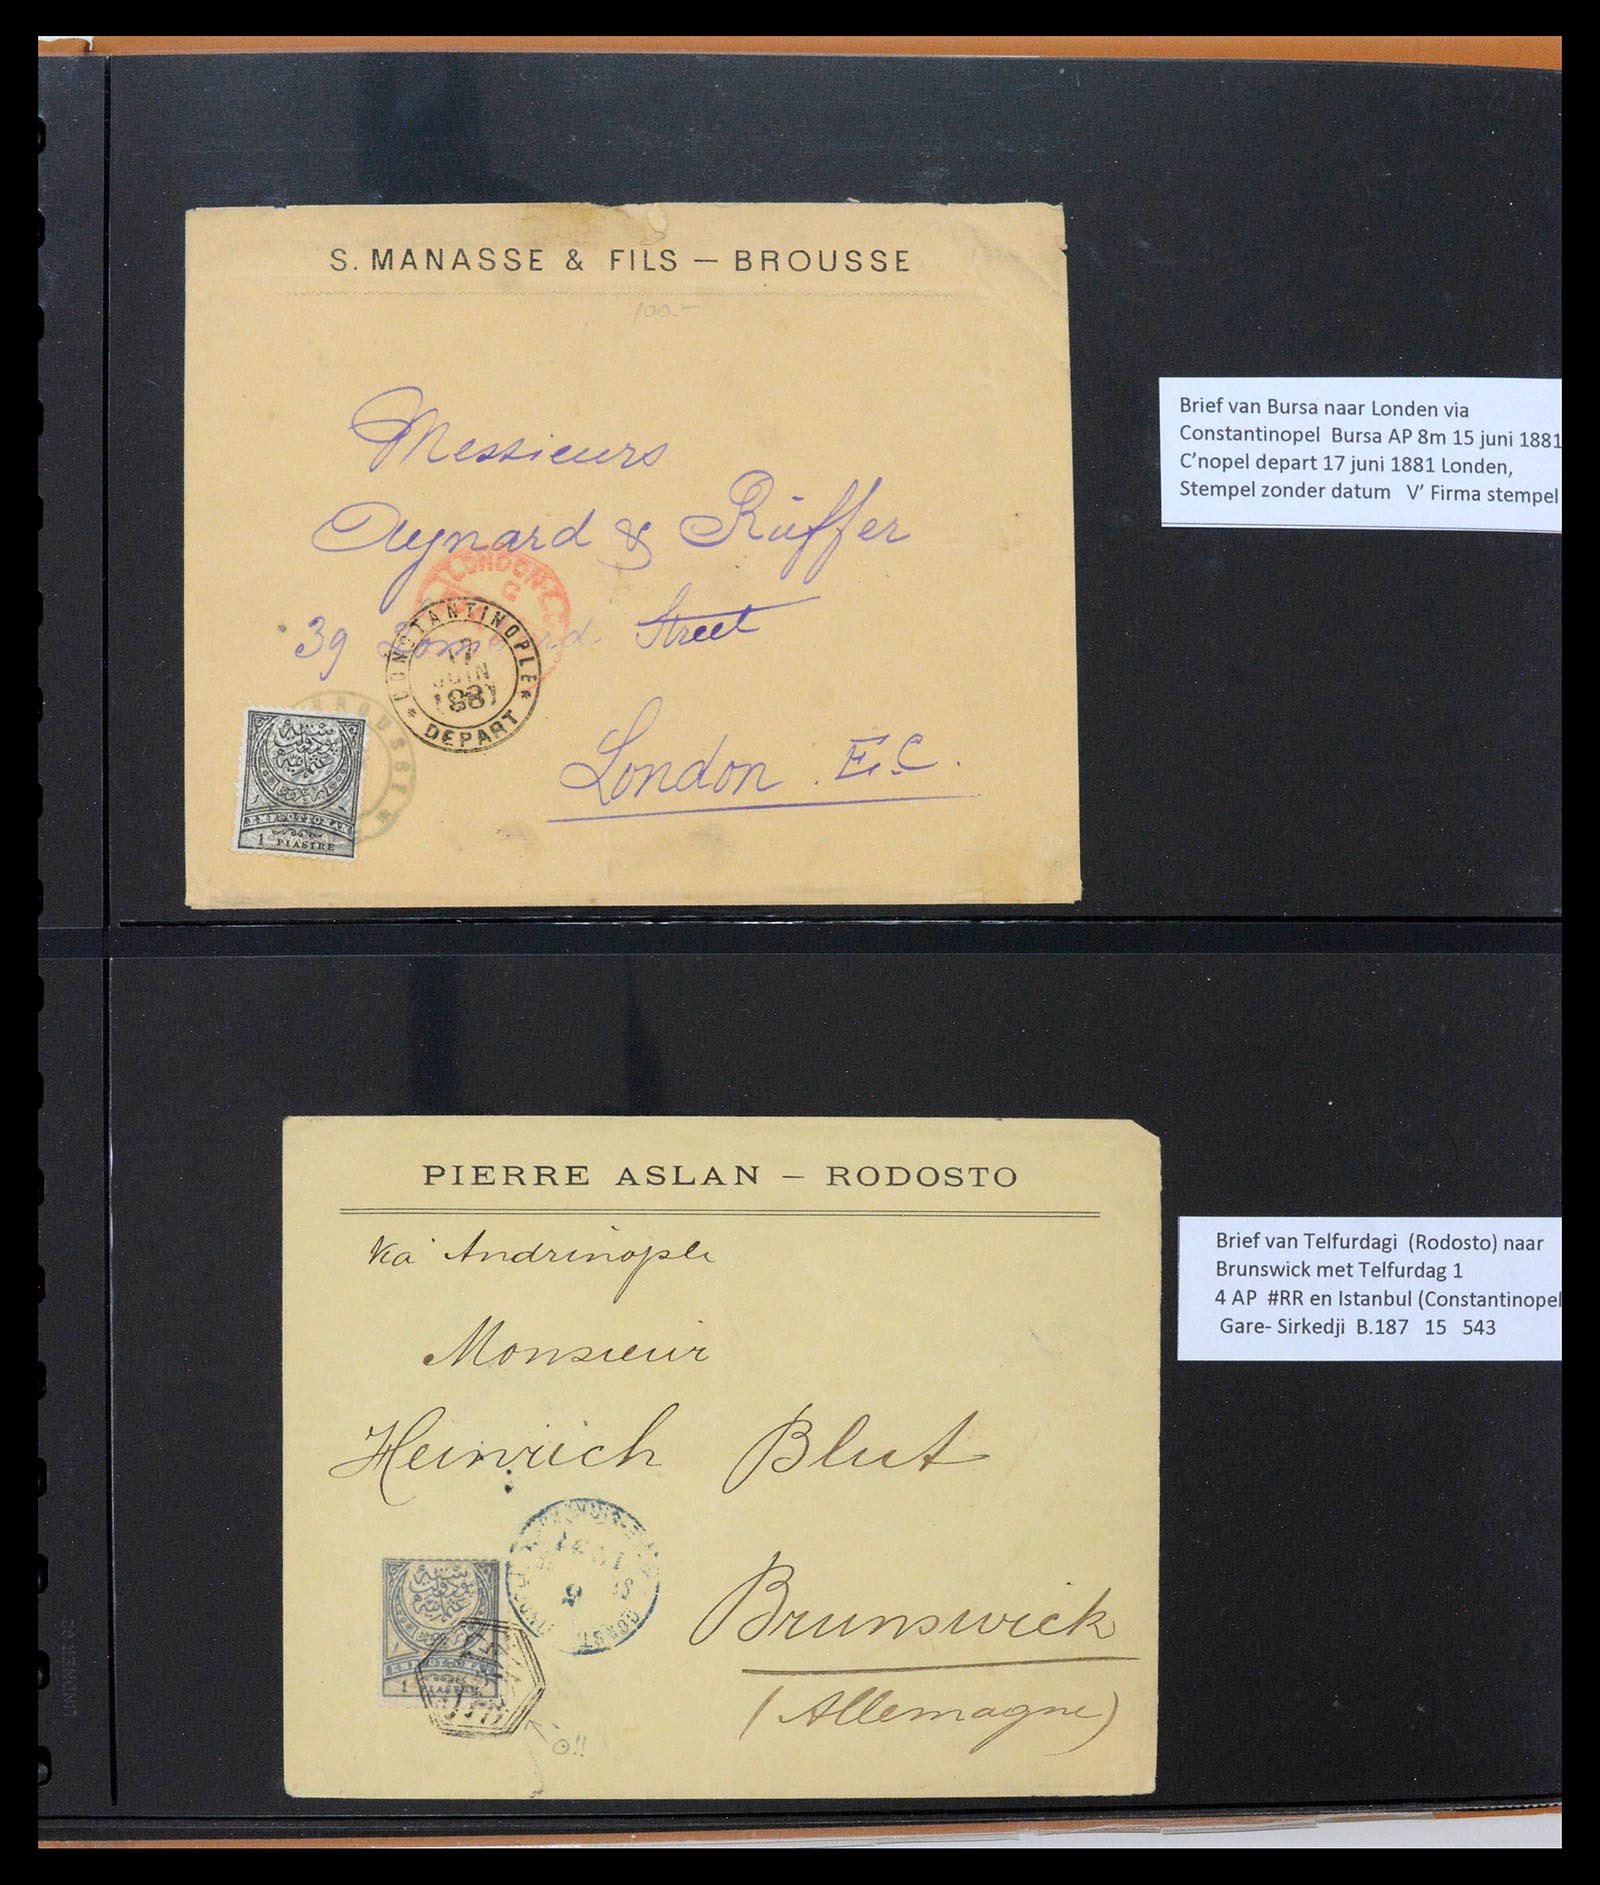 S. MANASSE & FILS — BROUSSE
100.—
Messieurs
Aynard & Rüffer
39 Lombard Street
London E.C.
LONDON
C
CONSTANTINOPLE
17
JUIN
DEPART
BROUSSE
EMP: OTTOMAN
1 PIASTRE
Brief van Bursa naar Londen via
Constantinopel Bursa AP 8m 15 juni 1881
C'nopel depart 17 juni 1881 Londen,
Stempel zonder datum V' Firma stempel
PIERRE ASLAN — RODOSTO
Via Andrinople
Monsieur
Heinrich Blut
Brunswick
(Allemagne)
CONST
5
EMP: OTTOMAN
1 PIASTRE
!!
Brief van Telfurdagi (Rodosto) naar
Brunswick met Telfurdag 1
4 AP #RR en Istanbul (Constantinopel
Gare- Sirkedji B.187 15 543
LINDNER 02